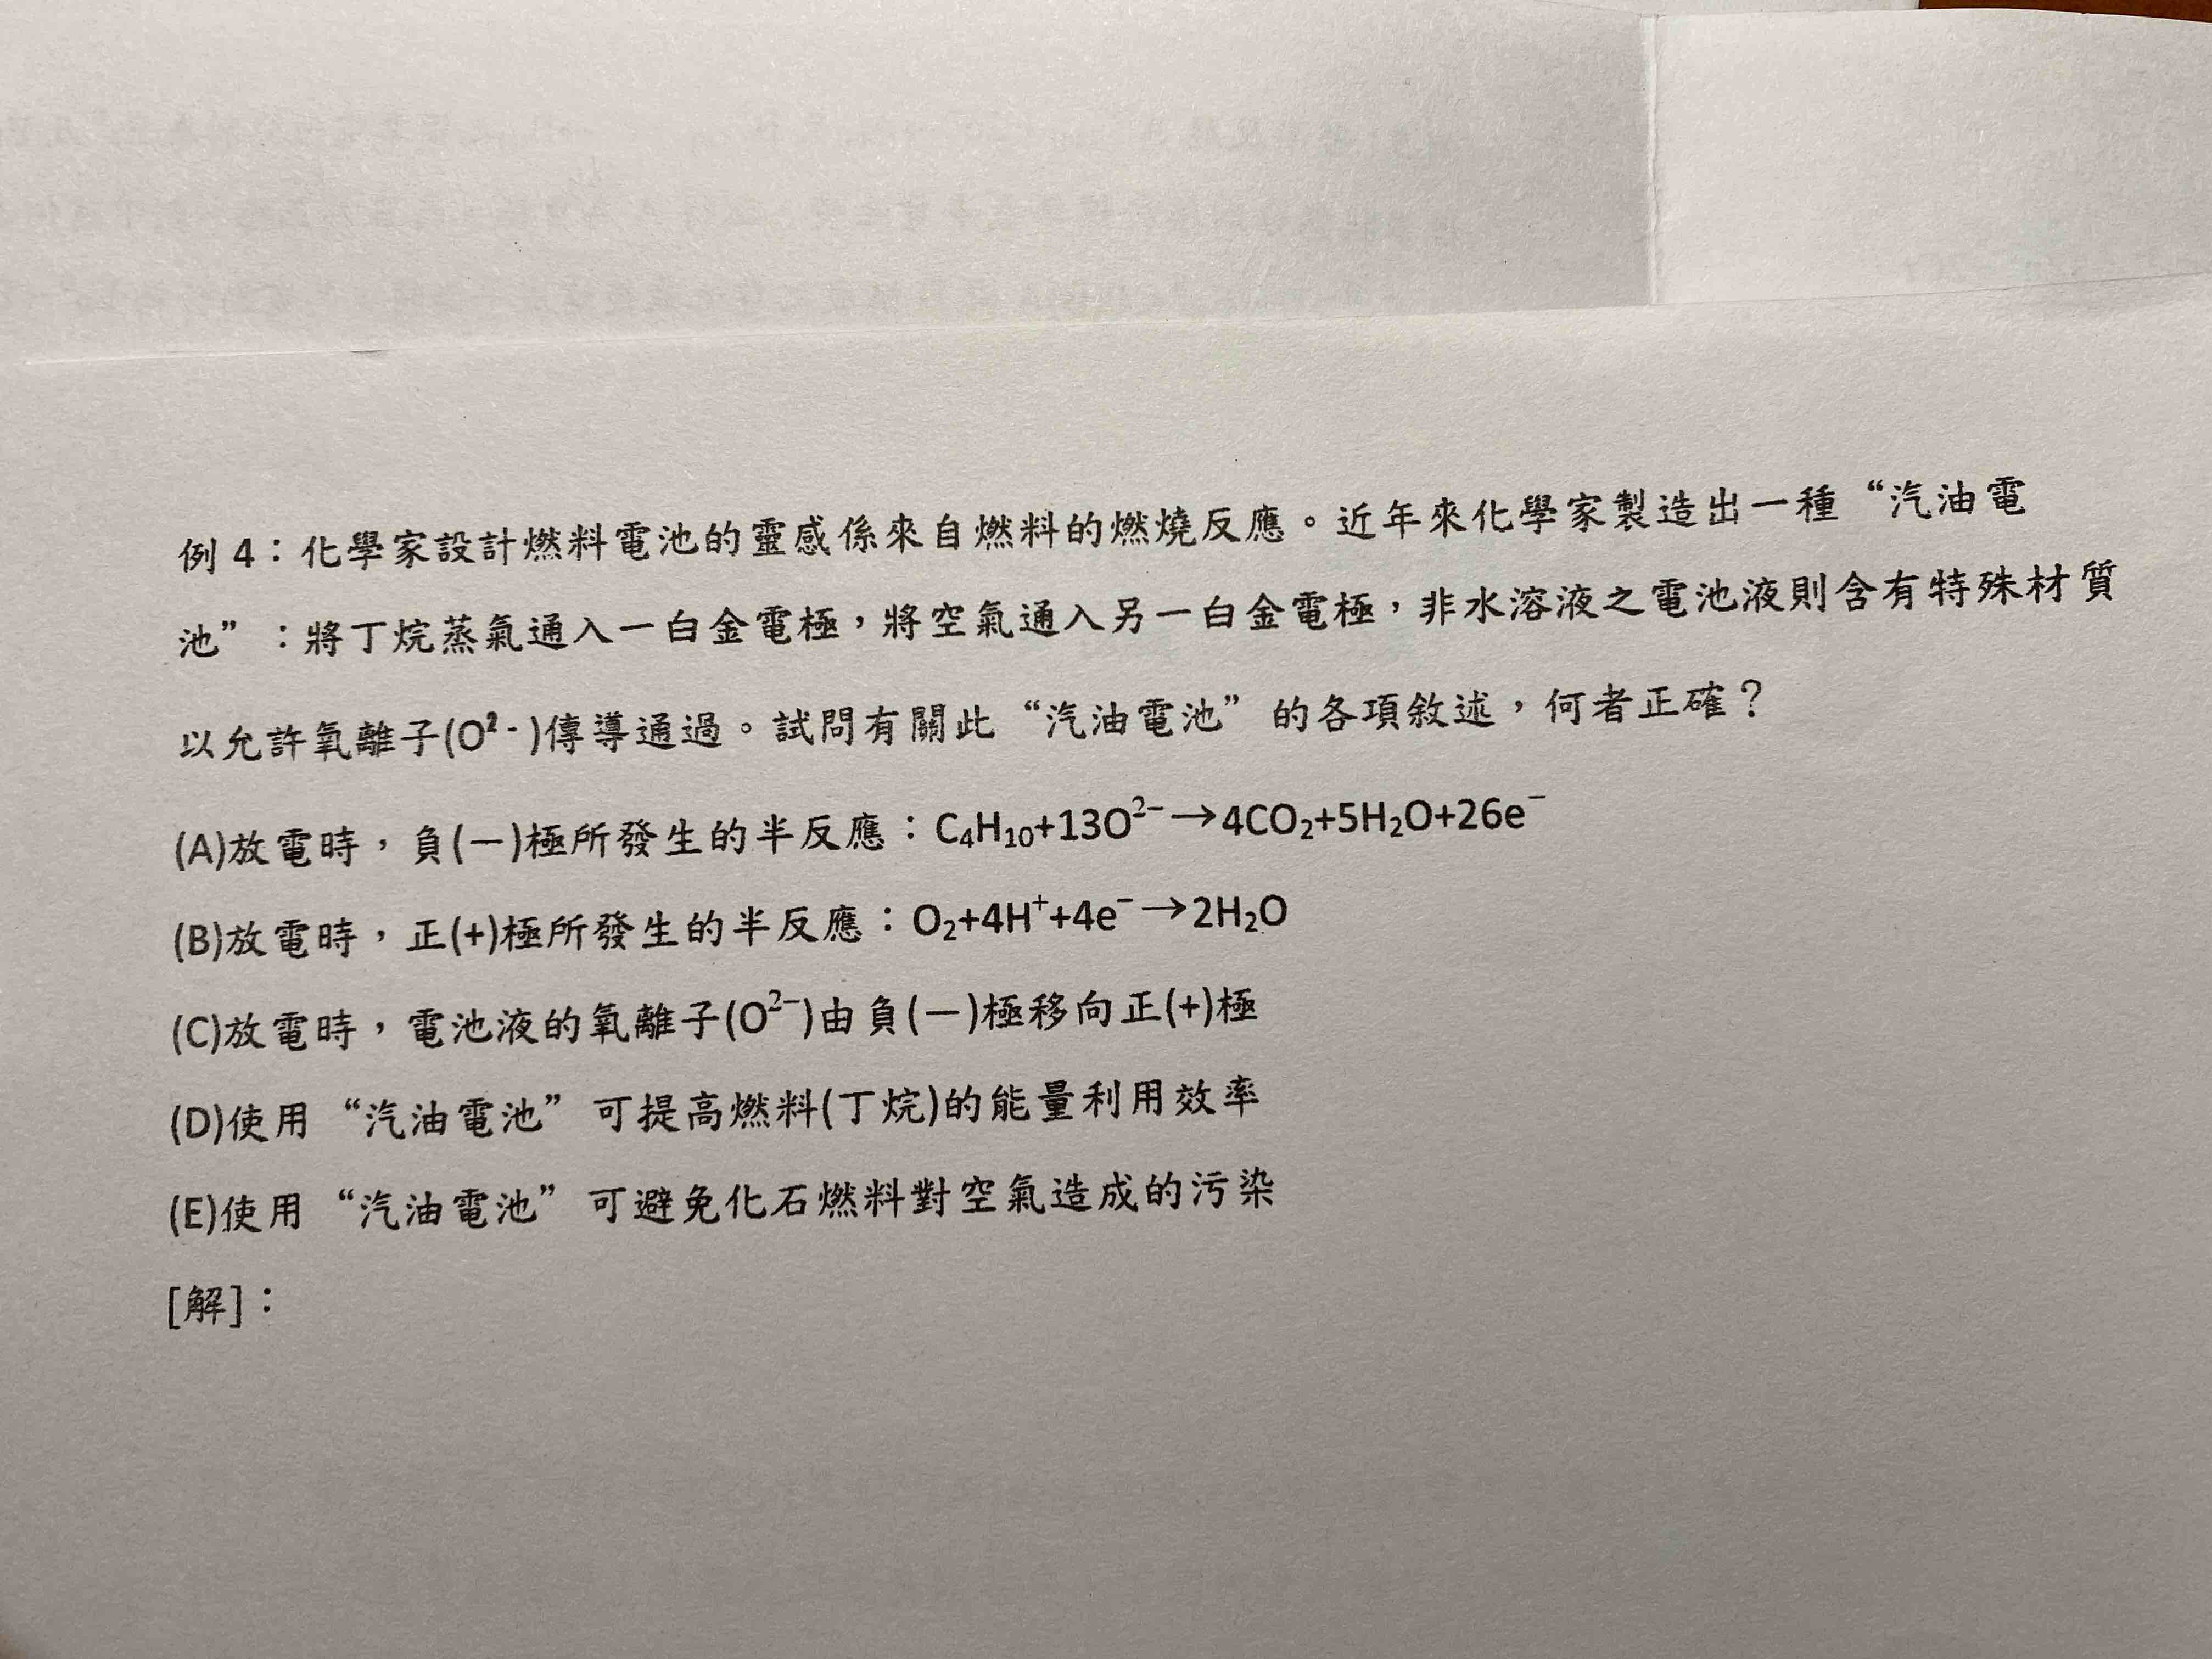 例 4：化學家設計燃料電池的靈感係來自燃料的燃燒反應。近年來化學家製造出一種“汽油電
池”：將丁烷蒸氣通入一白金電極，將空氣通入另一白金電極，非水溶液之電池液則含有特殊材質
以允許氧離子(O²⁻)傳導通過。試問有關此“汽油電池”的各項敘述，何者正確？
(A)放電時，負(－)極所發生的半反應：C₄H₁₀+13O²⁻→4CO₂+5H₂O+26e⁻
(B)放電時，正(+)極所發生的半反應：O₂+4H⁺+4e⁻→2H₂O
(C)放電時，電池液的氧離子(O²⁻)由負(－)極移向正(+)極
(D)使用“汽油電池”可提高燃料(丁烷)的能量利用效率
(E)使用“汽油電池”可避免化石燃料對空氣造成的污染
[解]：